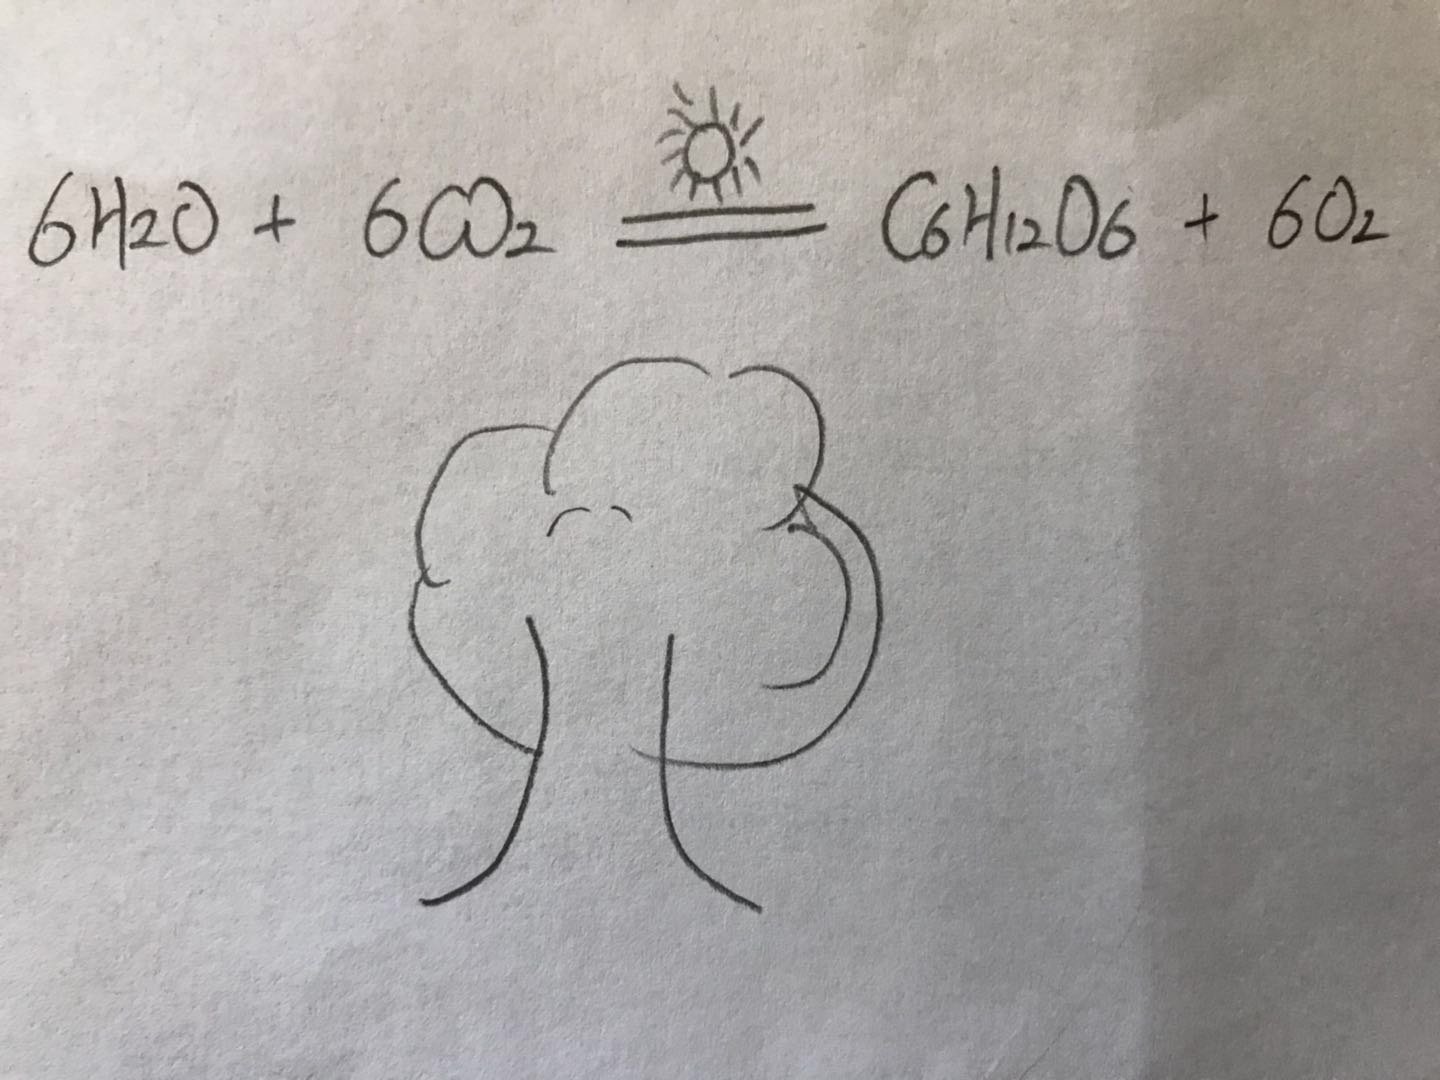 6H2O + 6CO2 = C6H12O6 + 6O2